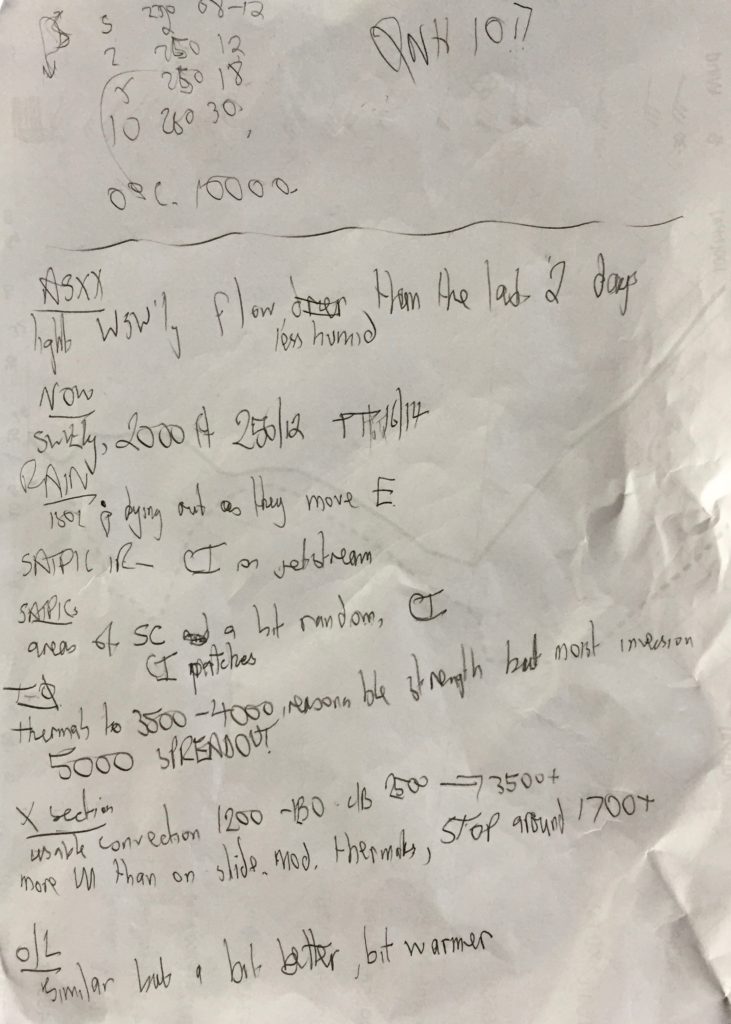 5 08-12
QNH 1017
2 250 12
250 18
10 260 30
0°C. 10000
ASXX
light WSW'ly flow drier than the last 2 days
less humid
NOW
SW'ly, 2000 ft 250/12 16/14
RAIN
dying out as they move E
SATPIC IR - CI on jetstream
SATPIC
areas of SC and a bit random, CI
CI patches
TΦ
thermals to 3500-4000, reasonable strength but moist inversion
5000 SPREADOUT
X section
usable convection 1200 - c/B 2500 → 3500+
more than on slide. mod. thermals, STOP around 1700+
O/L
similar but a bit better, bit warmer